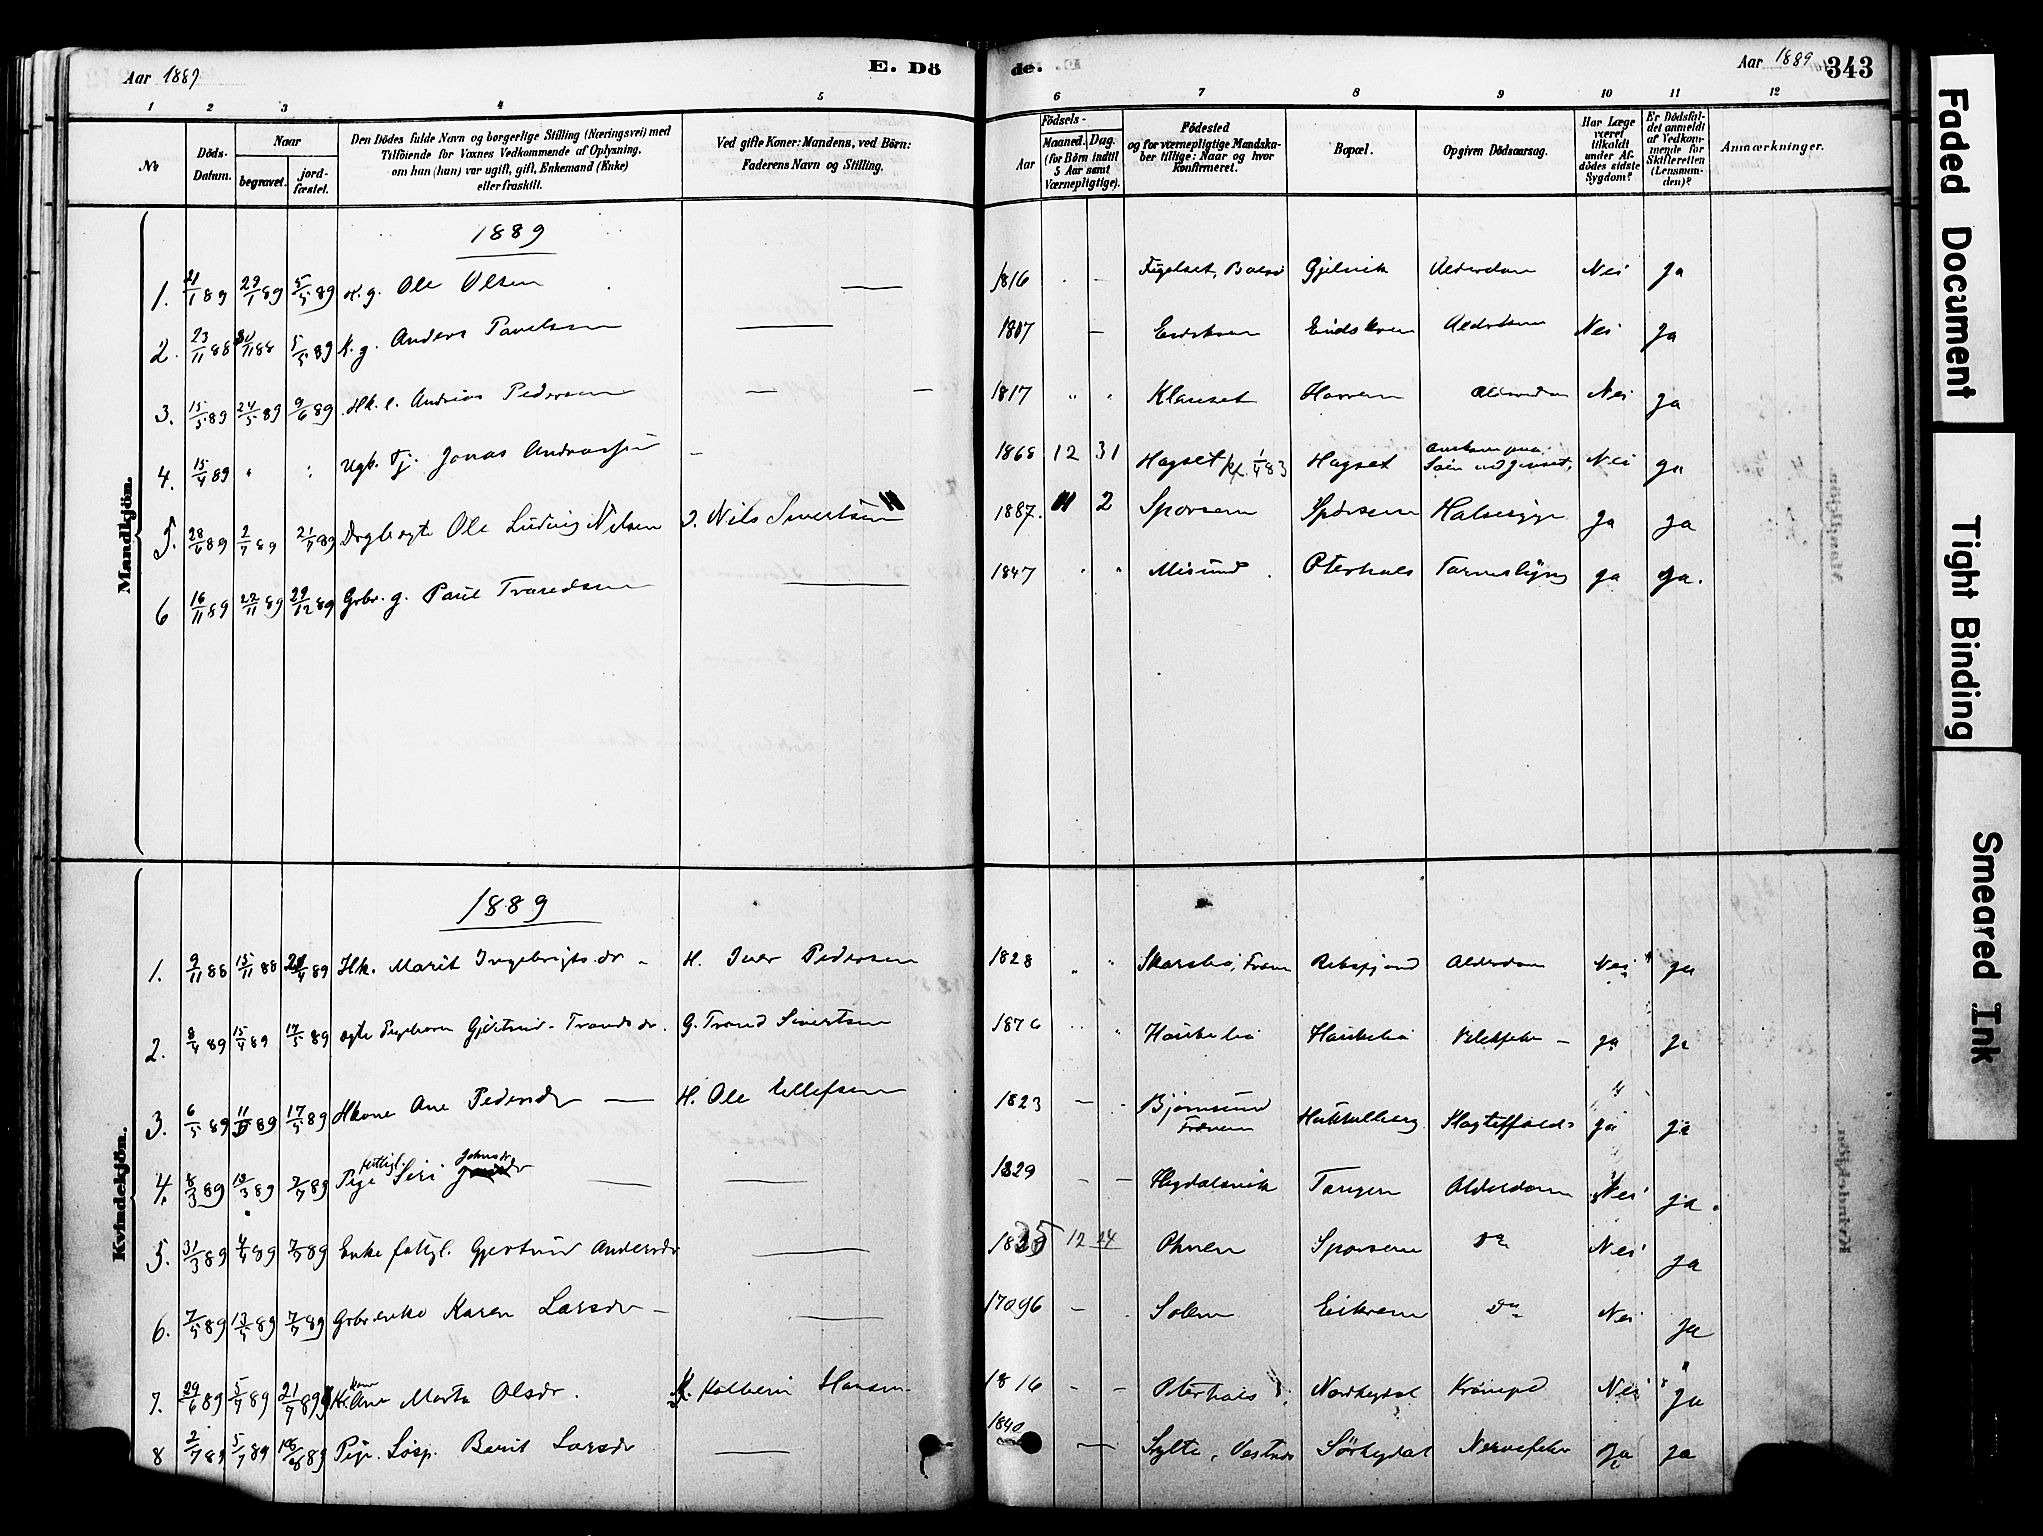 Aar 1889
E. Dö
de.
Aar 1889
343
1 2 3 4 5
6 7 8 9 10 11 12
No
Döds-
Datum.
Naar
begravet.
jord-
fæstet.
Den Dödes fulde Navn og borgerlige Stilling (Næringsvei) med
Tilföiende for Voxnes Vedkommende af Oplysning,
om han (hun) var ugift, gift, Enkemand (Enke)
eller fraskilt.
Ved gifte Koner: Mandens, ved Börn:
Faderens Navn og Stilling.
Födsels-
Aar
Maaned.
Dag.
(for Börn indtil
5 Aar samt
Værnepligtige).
Födested
og for værnepligtige Mandska-
ber tillige: Naar og hvor
Konfirmeret.
Bopæl.
Opgiven Dödsaarsag.
Har Læge
været
tilkaldt
under Af-
dödes sidste
Sygdom?
Er Dödsfal-
det anmeldt
af Vedkom-
mende for
Skifteretten
(Lensman-
den)?
Anmærkninger.
Mandkjön.
1889
1. 21/1 89 29/1 89 5/5 89 K. g. Ole Olsen — 1816 Gjelvik Alderdom Nei Ja
2. 23/11 88 /11 88 5/5 89 K. g. Anders Paulsen — 1817 — Alderdom Nei Ja
3. 15/5 89 24/5 89 9/6 89 Hk. e. Andreas Pedersen — — 1817 " " Klauset Alderdom Nei Ja
4. 15/4 89 " " Ugk. Tj. Jonas Andreassen — 1868 12 31 Hagset kf. 1/4 83 Hagset Nei Ja
5. 28/6 89 2/7 89 21/7 89 Ole Ludvig Nilsen Nils Sivertsen 1887. 11 2 Sporsem Sporsem Halsesyge Ja Ja
6 16/11 89 22/11 89 29/12 89 Gbr. g. Paul — 1847 " " Misund Oterhals Ja Ja.
Kvindekjön.
1889
1. 9/11 88 15/11 88 /4 89 Hk. Marit Ingebrigtsdr — H. Iver Pedersen 1828 " " Alderdom Nei Ja
2. 8/4 89 15/4 89 17/5 89 Gjertrud Trondsdr. G. Trond Sivertsen 1876 " " Ja Ja
3. 6/5 89 11/5 89 17/5 89 Hkone Ane Pedersdr — H. Ole Ellefsen 1823 — — Bjørnsund
Frænen Ja Ja
4. 8/3 89 13/3 89 7/7 89 Pige fattigl. Siri Johnsdr — — 1829 — — Hegdalsvik Tangen Alderdom Nei Ja.
5. 31/3 89 4/4 89 7/7 89 Enke fattgl. Gjertrud Andersdr — 1825 12 24 Sporsem Do Nei Ja
6. 7/5 89 13/5 89 7/7 89 Gbrenke Karen Larsdr — — 1796 — Solem Eikrem Do Nei Ja
7. 29/6 89 5/7 89 21/7 89 Kone Ane Marta Olsdr. K. Kolbein Hansen 1816 — — Oterhals Nordhegdal Nei Ja
8 2/7 89 5/7 89 18/8 89 Pige. Løsg. Berit Larsdr — 1840 — Sylte, Vestnes Sørhegdal Nervefeber Ja Ja
Faded Document
Tight Binding
Smeared Ink